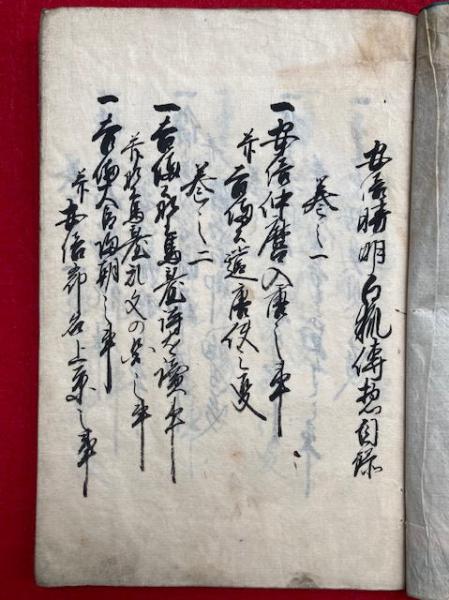 安倍晴明白狐傳惣目録
巻之一
一安倍仲麿入唐之事
并吉備公遣唐使之事
巻之二
一吉備公野馬臺詩を讀事
并野馬臺乱文の岩之事
一吉備大臣帰朝之事
并安倍郡名上京之事